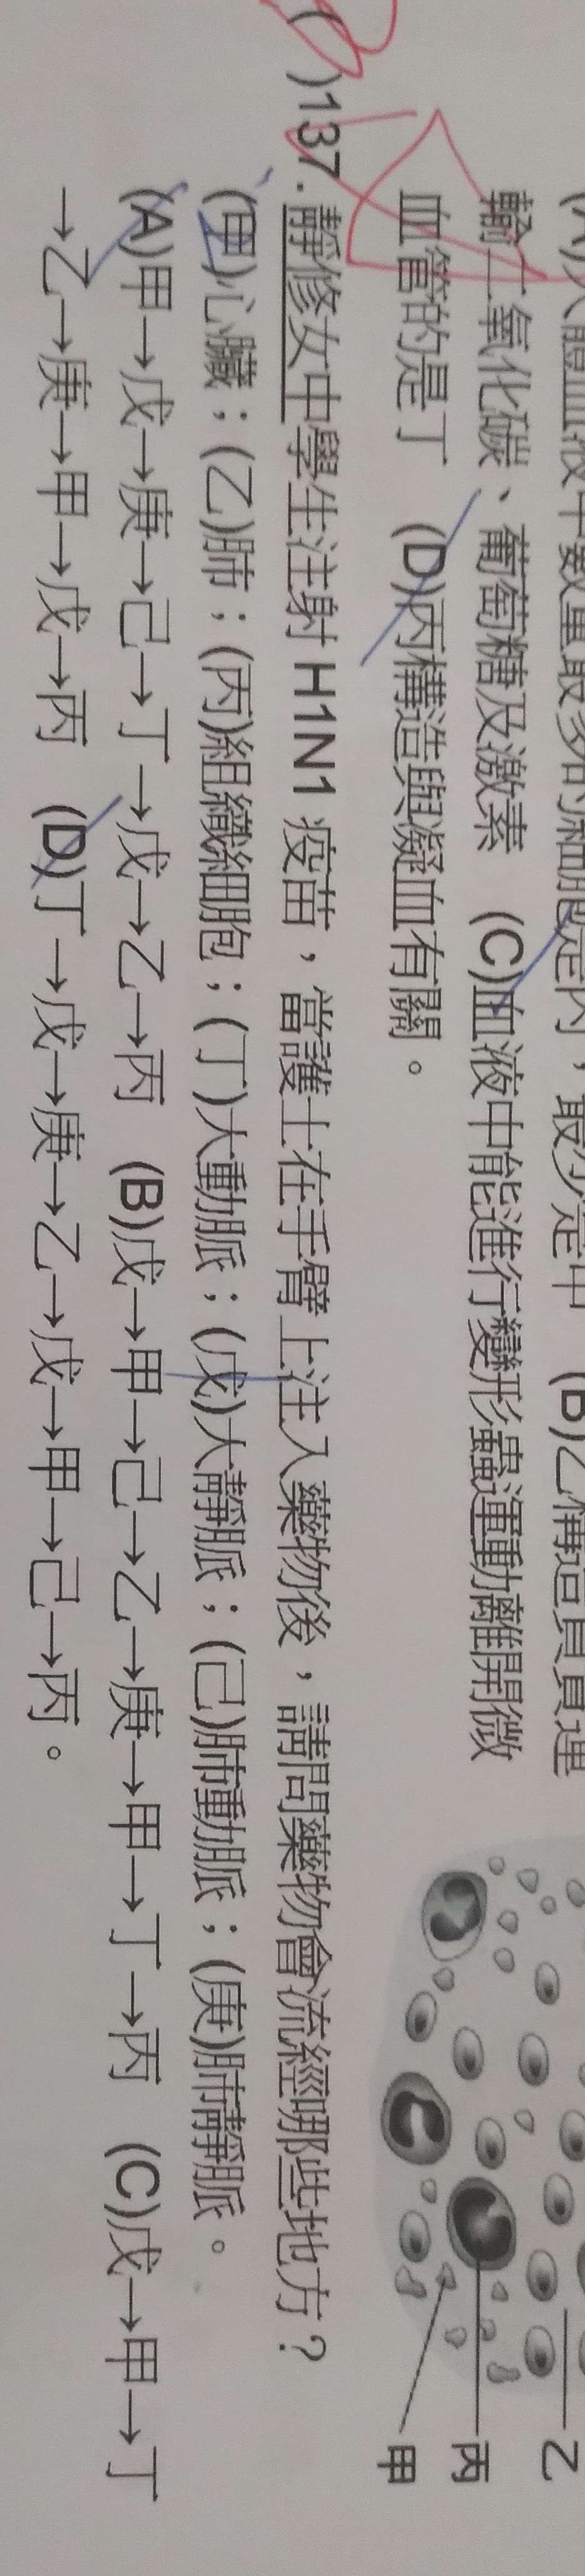 輸二氧化碳、葡萄糖及激素 (C)血液中能進行變形蟲運動離開微
血管的是丁 (D)丙構造與凝血有關。
乙
丙
甲
( )137.靜修女中學生注射 H1N1 疫苗，當護士在手臂上注入藥物後，請問藥物會流經哪些地方？
(甲)心臟；(乙)肺；(丙)組織細胞；(丁)大動脈；(戊)大靜脈；(己)肺動脈；(庚)肺靜脈。
(A)甲→戊→庚→己→丁→戊→乙→丙 (B)戊→甲→己→乙→庚→甲→丁→丙 (C)戊→甲→丁
→乙→庚→甲→戊→丙 (D)丁→戊→庚→乙→戊→甲→己→丙。